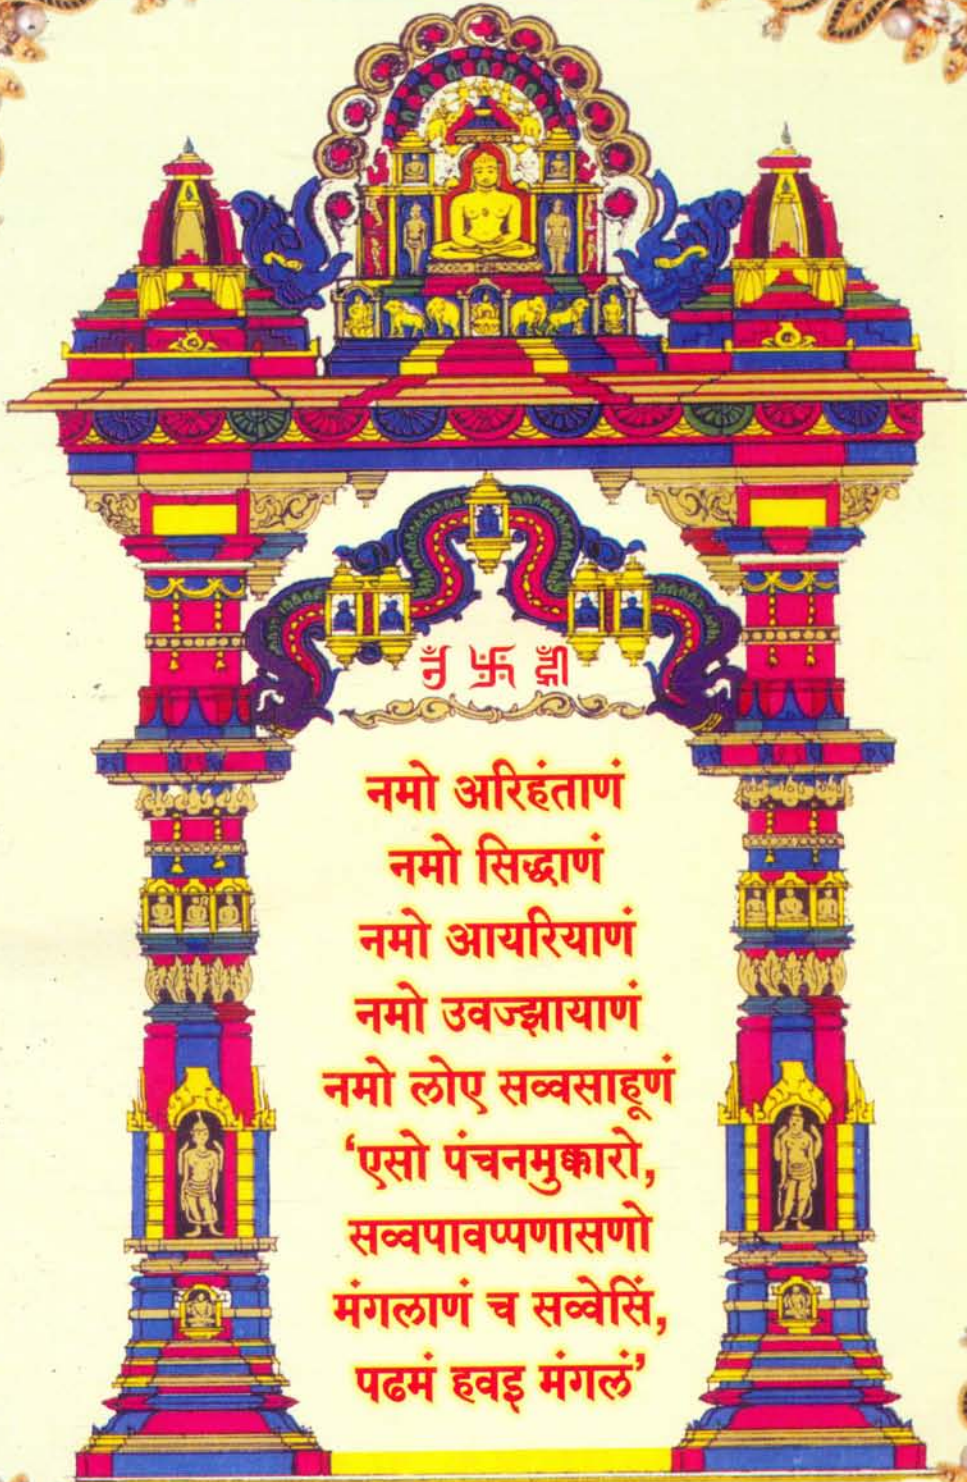 ॐ 卐 ह्रीँ
नमो अरिहंताणं
नमो सिद्धाणं
नमो आयरियाणं
नमो उवज्झायाणं
नमो लोए सव्वसाहूणं
‘एसो पंचनमुक्कारो,
सव्वपावप्पणासणो
मंगलाणं च सव्वेसिं,
पढमं हवइ मंगलं’